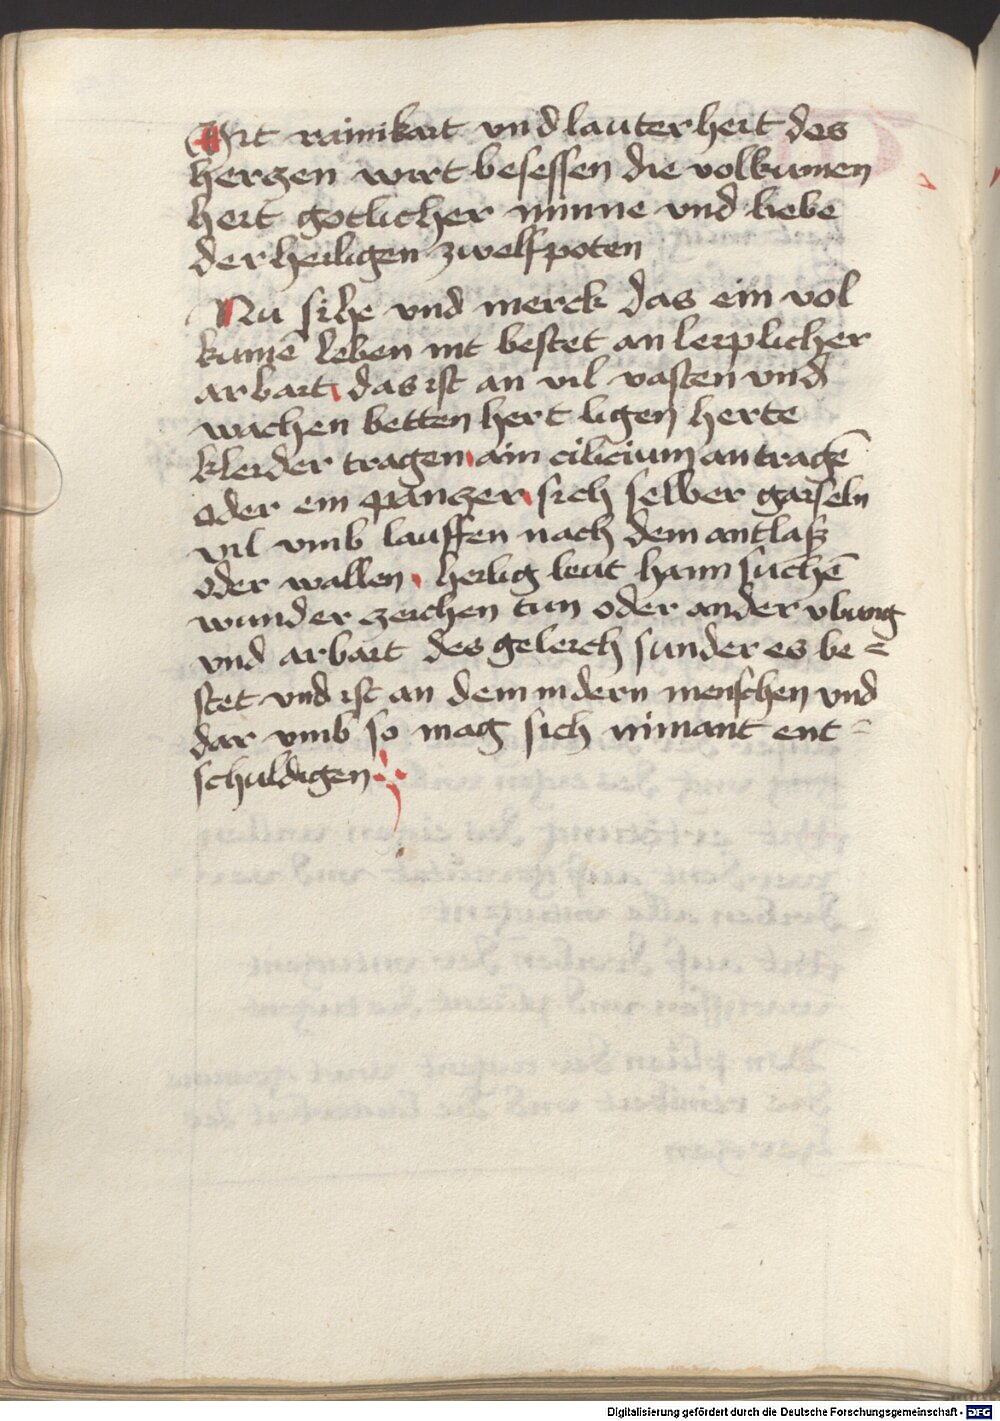 Mit rainikait vnd lauterheit des
herczen wirt besessen die volkumen
heit gotlicher minne vnd liebe
der heiligen zwelfpoten
Nu sihe vnd merck das ein vol
kumē leben nit bestet an leiplicher
arbait das ist an vil vasten vnd
wachen betten hert ligen herte
kleider tragen ain cilicium an tragē
oder ein panczer sich selber gaiseln
vil vmb lauffen nach dem antlasz
oder wallen heilig leut haim suchē
wunder zeichen tun oder ander vbung
vnd arbait des geleich sunder es be=
stet vnd ist an dem indern menschen vnd
dar vmb so mag sich nimant ent=
schuldigen
Digitalisierung gefördert durch die Deutsche Forschungsgemeinschaft - DFG